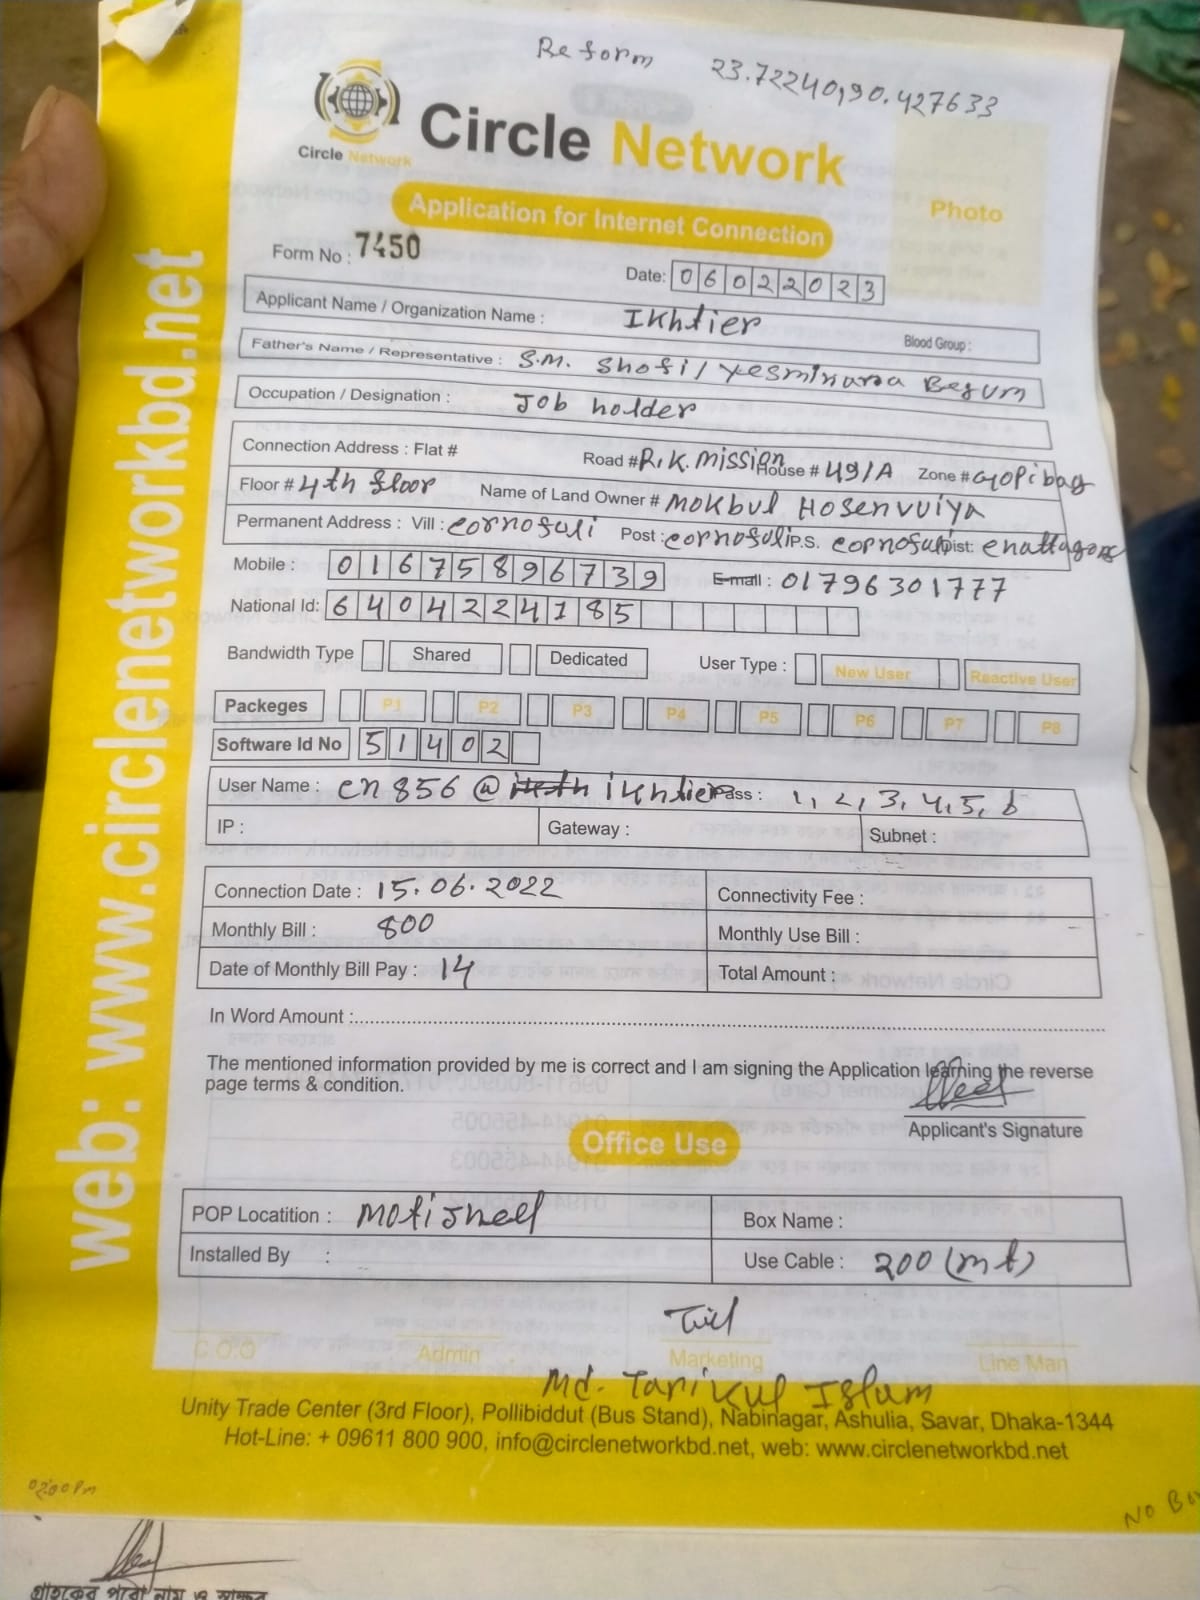 Re form 23.72240,90.427633
Circle Network
Circle Network
Application for Internet Connection
Photo
Form No : 7450
Date: 06022023
Applicant Name / Organization Name : Ikhtier Blood Group :
Father's Name / Representative : S.M. Shofi / Yesminara Begum
Occupation / Designation : Job holder
Connection Address : Flat # Road # R.K. Mission House # 49/A Zone # Gopibag
Floor # 4th floor Name of Land Owner # Mokbul Hosenvuiya
Permanent Address : Vill : cornofuli Post : cornofuli P.S. cornofuli Dist:
Mobile : 01675896739 E-mail : 01796301777
National Id: 6404224185
Bandwidth Type Shared Dedicated User Type : New User Reactive User
Packeges P1 P2 P3 P4 P5 P6 P7 P8
Software Id No 51402
User Name : cn856@ikhtier Pass : 1,2,3,4,5,6
IP : Gateway : Subnet :
Connection Date : 15.06.2022 Connectivity Fee :
Monthly Bill : 800 Monthly Use Bill :
Date of Monthly Bill Pay : 14 Total Amount :
In Word Amount :
The mentioned information provided by me is correct and I am signing the Application learning the reverse
page terms & condition.
Applicant's Signature
Office Use
POP Locatition : Motijheel Box Name :
Installed By : Use Cable : 200 (mt)
C.O.O Admin Marketing Line Man
Md. Tarikul Islam
Unity Trade Center (3rd Floor), Pollibiddut (Bus Stand), Nabinagar, Ashulia, Savar, Dhaka-1344
Hot-Line: + 09611 800 900, info@circlenetworkbd.net, web: www.circlenetworkbd.net
web: www.circlenetworkbd.net
02:00 Pm
No Box
গ্রাহকের পুরো নাম ও স্বাক্ষর